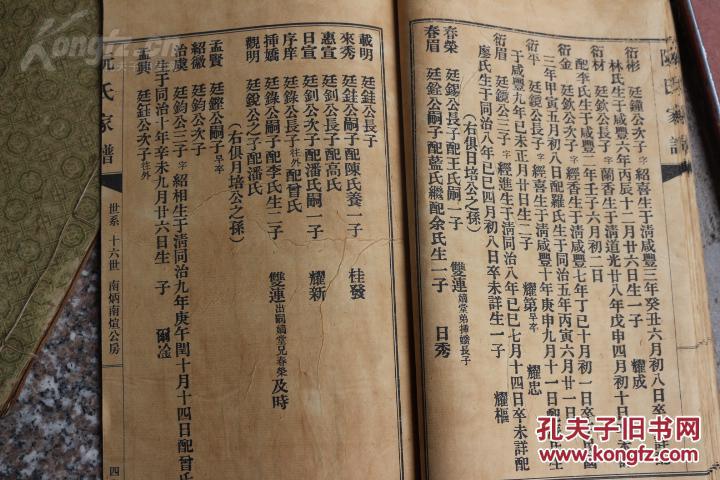 衍彬 廷鐘公次子字紹喜生于清咸豐三年癸丑六月初八日卒
林氏生于咸豐六年丙辰十二月廿六日生一子 耀成
衍材 廷欽公長子字蘭香生于清道光廿八年戊申四月初十日
配李氏生于咸豐二年壬子六月初二日
衍金 廷欽公次子字經香生于清咸豐七年丁巳十月初一日
三年甲寅五月初八日配羅氏生于同治五年丙寅六月廿一日
衍平 廷鏡公長子字經喜生于清咸豐十年庚申九月十一日
于咸豐九年己未正月廿日生二子 耀第早卒 耀忠
衍眉 廷鏡公三子字經進生于清同治八年己巳七月十四日卒未詳配
廖氏生于同治八年己巳四月初八日卒未詳生一子 耀樞
(右俱日培公之孫)
春榮 廷錫公長子配王氏嗣一子 雙連嫡堂弟挿嬌長子
春眉 廷銓公嗣子配藍氏繼配余氏生一子 日秀
載明 廷銈公長子
來秀 廷銈公嗣子配陳氏養一子 桂發
惠宣 廷釗公長子配高氏
日宣 廷釗公次子配潘氏嗣一子 耀新
序庠 廷錄公長子往外配曾氏
挿嬌 廷錄公嗣子配李氏生二子 雙連出嗣嫡堂兄春榮 及時
觀明 廷銳公之子配潘氏
(右俱日培公之孫)
孟賢 廷鏗公嗣子早卒
紹徽 廷鈞公次子
治虞 廷鈞公三子字紹相生于清同治九年庚午閏十月十四日配曾氏
生于同治十年辛未九月廿六日生 子 爾淦
孟興 廷鈺公次子往外
阮氏家譜
世系 十六世 南炳南煊公房
四
孔夫子旧书网
www.kongfz.com
Kongfz.com